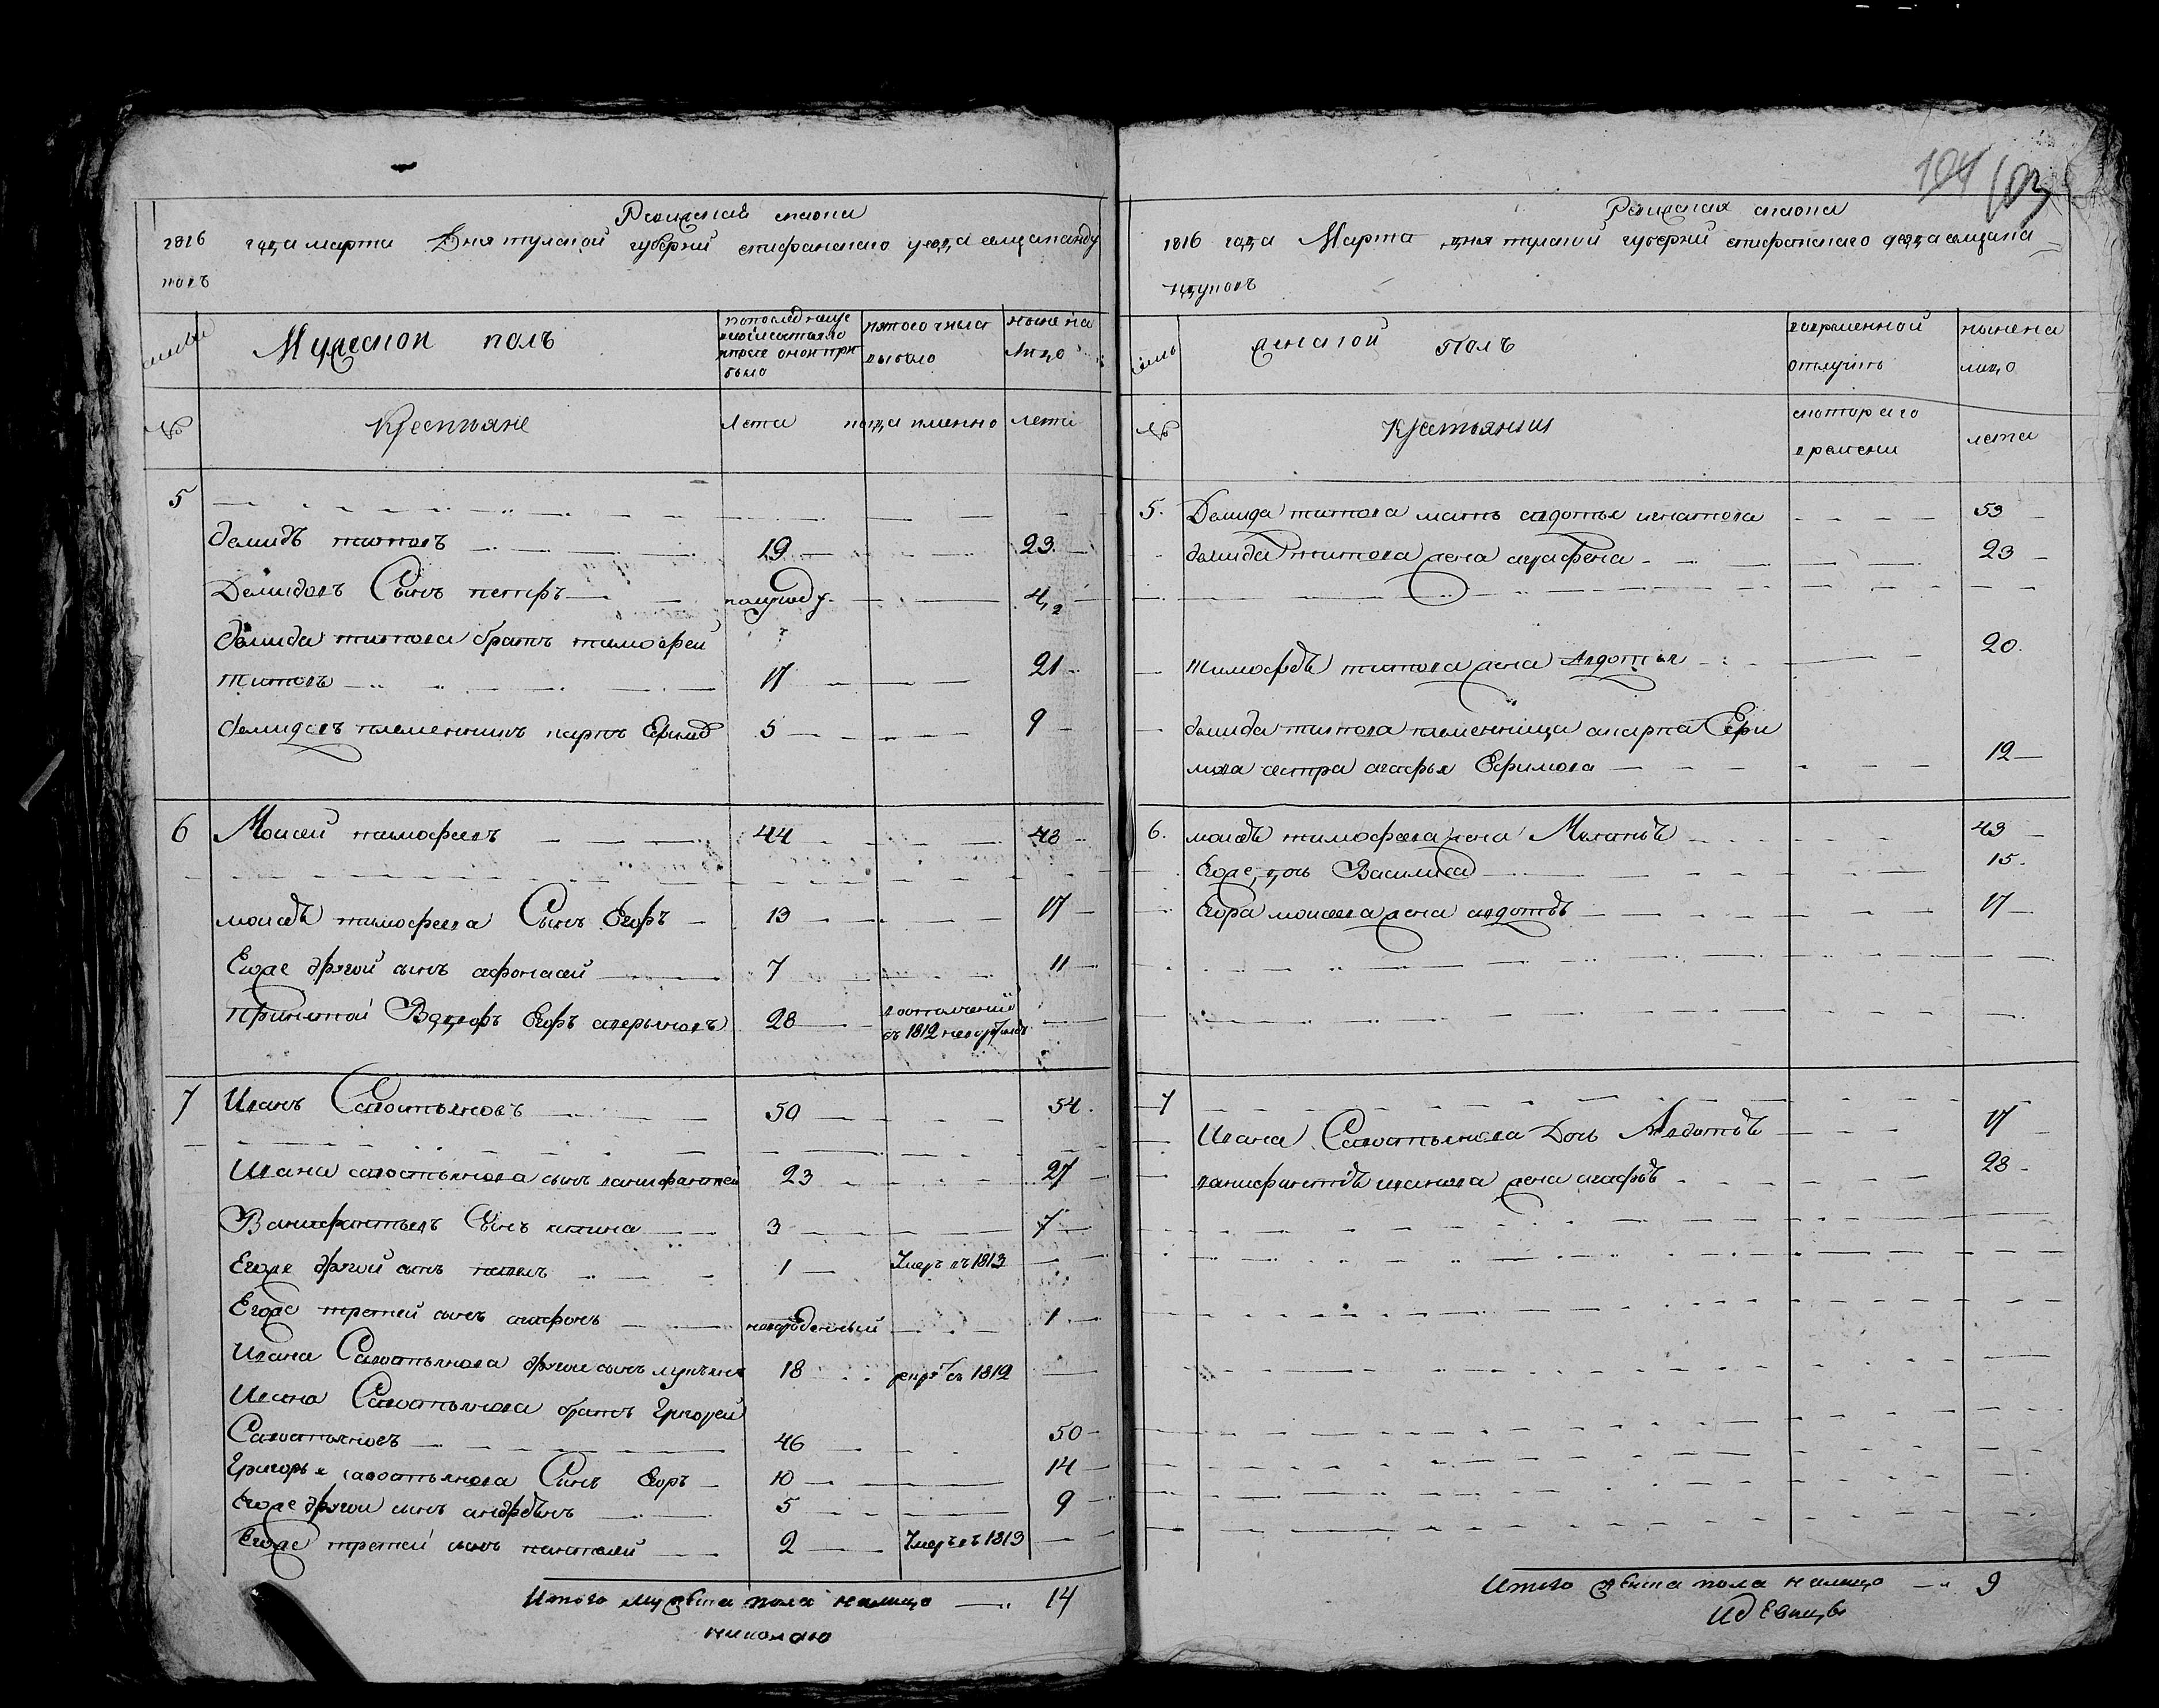 Ревиская скаска
1816 года марта Дня тулской губерни епифанского уезда селца канду
ковъ
семьи Мужескои полъ
попоследнеи ревизии состояло ипосле онои при было
изтого числа выбыло
ныне на лицо
№ Крестьяне Лета когда имянно лета
5
демидъ титовъ 19 23
Демидовъ Сынъ петръ полугоду 4½
демида титова братъ тимофеи
титовъ 17 21
демидовъ племенникъ карпъ Ефимовъ 5 9
6 Моисеи тимофеевъ 44 48
моисеѣ тимофеева Сынъ Егоръ 13 17
Егоже другой сынъ афонасей 7 11
приимной Егоръ аверьяновъ 28 вополчении въ 1812 невозвратился
7 Иванъ Савостьяновъ 50 54
Ивана савостьянова сынъ ванифантей 23 27
Ванифантьевъ Сынъ никита 3 7
Егоже другой сынъ павелъ 1 Умеръ въ 1813
Егоже третей сынъ агафонъ новорожденный 1
Ивана Савостьянова другои сынъ лукьянъ 18 рекрутъ 1812
Ивана Савостьянова братъ Григорей
Савостьяновъ 46 50
Григорья савостьянова Сынъ Егоръ 10 14
Егоже другои сынъ андреянъ 5 9
Егоже третей сынъ пантелей 2 Умеръ въ 1813
Итого мужеска пола налицо 14
николаю
104 103
Ревиская скаска
1816 года Марта дня тулской губерни епифанскаго уезда селцака
ндуковъ
семьи женской Полъ
вовременной отлучке
ныне на лицо
№ Крестьянки
скоторого времени
лета
5. Демида титова мать авдотья игнатова 53
демида титова жена аграфена 23
тимофеѣ титова жена Авдотья 20.
демида титова племенница акарпа Ефи
мова сестра агафья Ефимова 12
6. моисеѣ тимофеева жена Меланьѣ 43
Егоже дочь Василиса 15.
Егора моисеева жена авдотьѣ 17
7
Ивана Савостьянова Дочь Авдотьѣ 17
ванифантеѣ иванова жена агафьѣ 28
Итого женска пола налицо 9
Идевицъ